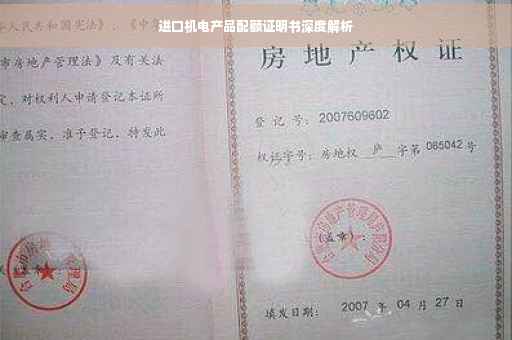 进口机电产品配额证明书深度解析
人民共和国宪法》、《中
市房地产管理法》及有关法
定，对权利人申请登记本证所
审查属实，准予登记，特发此
房地产权证
登记号：2007609602
权证字号：房地权 庐 字第 085042 号
(盖章)：
填发日期：2007 年 04 月 27 日